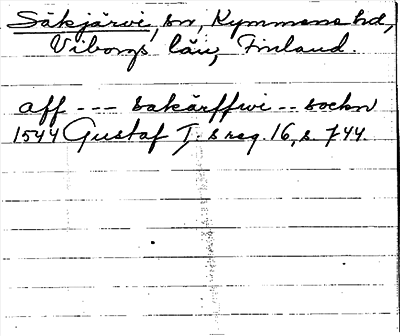 Säkjärvi, sn, Kymmene hd,
Viborgs län, Finland.
aff --- sakärffwi -- sockn
1544 Gustaf I:s reg. 16, s. 744.